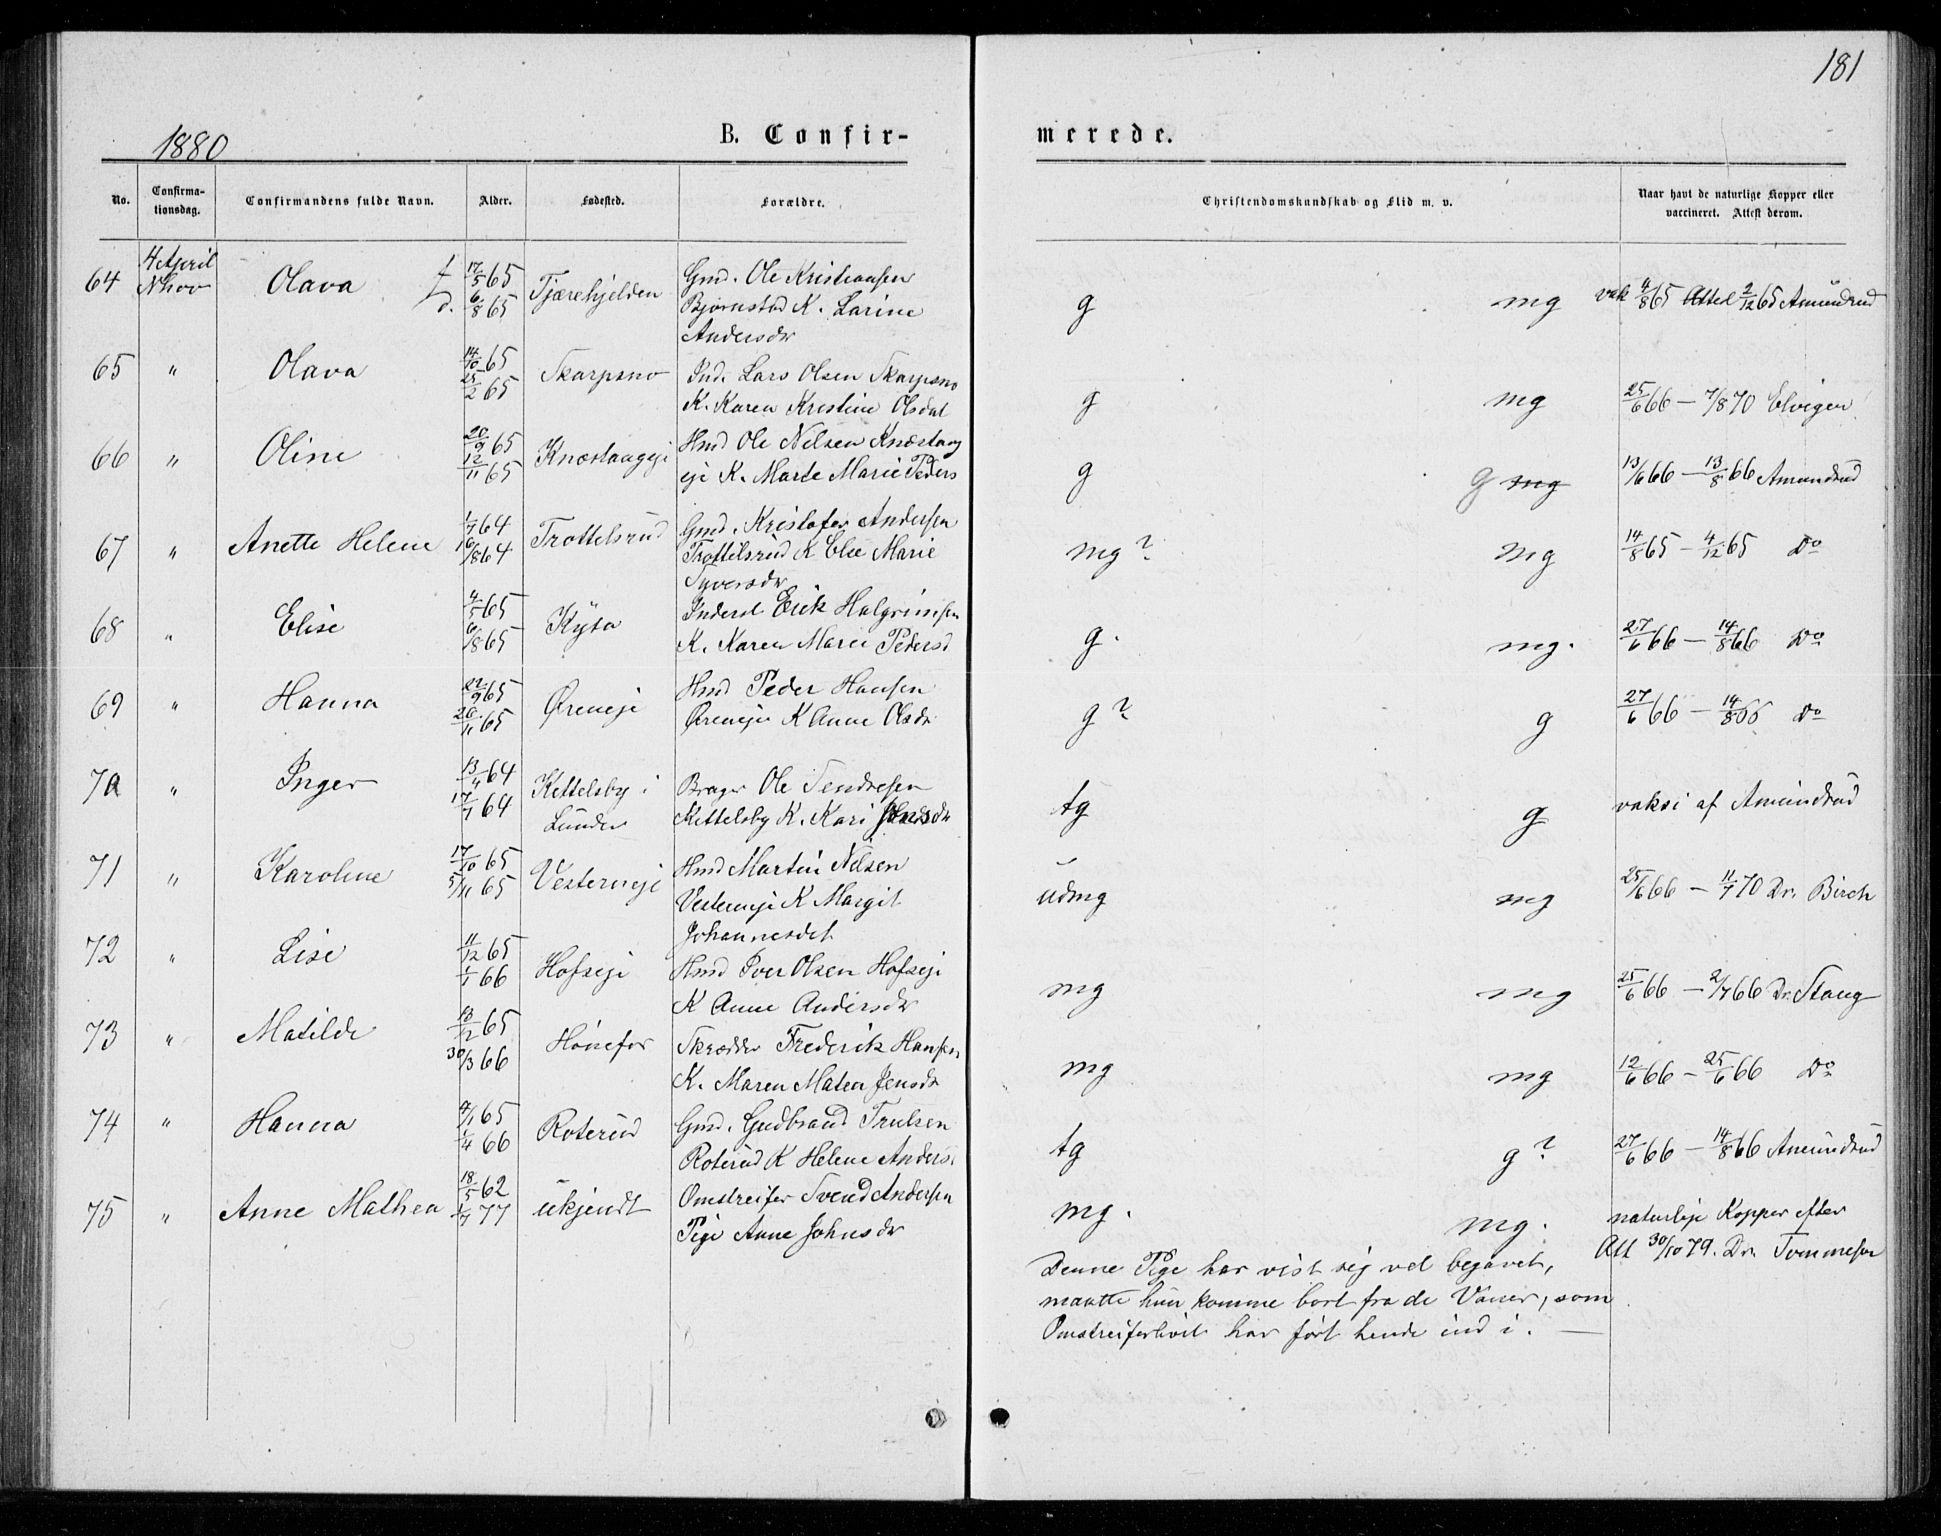 181
1880
B. Confir-
merede.
No.
Confirma-
tionsdag.
Confirmandens fulde Navn.
Alder.
Fødested.
Forældre.
Christendomskundskab og Flid m. v.
Naar havt de naturlige Kopper eller
vaccineret. Attest derom.
4 April
64 Nhov Olava f 17/5 65 Tjærehjelden Gmd. Ole Kristiansen
d. 6/8 65 Bjørnstad K. Larine
Andersdr
g mg vak 4/8 65 Attest 2/12 65 Amundrud
65 " Olava 14/10 65 Skarpsno Ind. Lars Olsen Skarpsno
25/2 65 K. Karen Kristine Olsdat
g mg 25/6 66 – 7/8 70 Elvigen
66 " Oline 20/9 65 Knæstangeje Hmd Ole Nilsen Knæstang
12/11 65 eje K. Marte Marie Peders
g g mg 13/6 66 – 13/8 66 Amundrud
67 " Anette Helene 1/7 64 Trøttelsrud Gmd. Kristofer Andersen
16/8 64 Trøttelsrud K Else Marie
Syversdr
mg? mg 14/8 65 – 4/12 65 Do
68 " Elise 4/5 65 Inderst Erik Halgrimsen
6/8 65 K. Karen Marie Pedersd
g. mg. 27/6 66 – 14/8 66 Do
69 " Hanna 22/9 65 Øreneje Hmd Peder Hansen
26/11 65 Øreneje K Anne Olsdr
g? g 27/6 66 – 14/8 66 Do
70 " Inger 13/4 64 Kittelsby i Bruger Ole
17/7 64 Lunder Kittelsby K. Kari
tg g vaksi af Amundrud
71 " Karoline 17/10 65 Vesterneje Hmd Martin Nilsen
5/11 65 Vesterneje K Margit
Johannesdat
udmg mg 25/6 66 – 11/7 70 Dr. Birch
72 " Lise 11/12 65 Hofseje Hmd Iver Olsen Hofseje
1/1 66 K Anne Andersdr
mg mg 25/6 66 – 2/7 66 Dr. Stang
73 " Matilde 13/12 65 Hønefos Skrædder Frederik Hansen
30/3 66 K. Maren Maten Jensdr
mg mg 12/6 66 – 25/6 66 Do
74 " Hanna 4/11 65 Roterud Gmd. Gudbrand Trulsen
1/4 66 Roterud K Helene Anders
tg g? 27/6 66 – 14/8 66 Amundrud
75 " Anne Mathea 18/5 62 ukjendt Omstreifer Svend Andersen
1/7 77 Pige Anne Johnsdr
mg. mg. naturlige Kopper efter
Att 30/10 79. Dr. Tommesen
Denne Pige har vist sig vel begavet,
maatte hun komme bort fra de Vaner, som
Omstreiferlivet har ført hende ind i. —